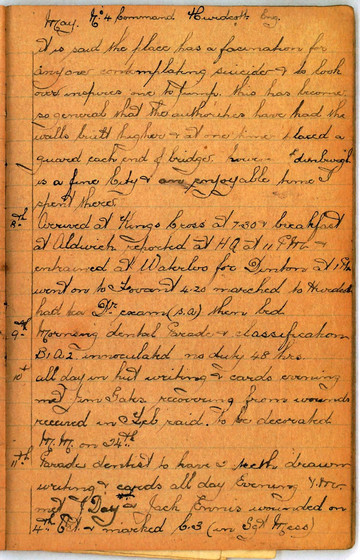 May. No 4 Command Hurdcott Eng.
it is said the place has a fascination for
anyone contemplating suicide & to look
over inspires one to jump. this has become
so general that the authorities have had the
walls built higher & at one time placed a
guard each end of bridge. Edinburgh
is a fine City & an enjoyable time I
spent there
8th Arrived at Kings Cross at 7.30 & breakfast
at Aldwich reported at HQ at 11
entrained at Waterloo for Dinton at 1
went on to Fovant 4.20 marched to Hurdcott
had tea Dr. exam (s.a) then bed
9th Morning dental Parade & classification
B1A2 innoculated no duty 48 hrs.
10th all day in hut writing & cards evening
met Jim Oaks recovering from wounds
received in Feb raid. To be decorated
M.M. on 24th
11th Parades dentist to have 2 teeth drawn
writing & cards all day Evening Y.M.
met J Day & Jack Ennis wounded on
4th Oct. & marked C.3 (in Sgt Mess)